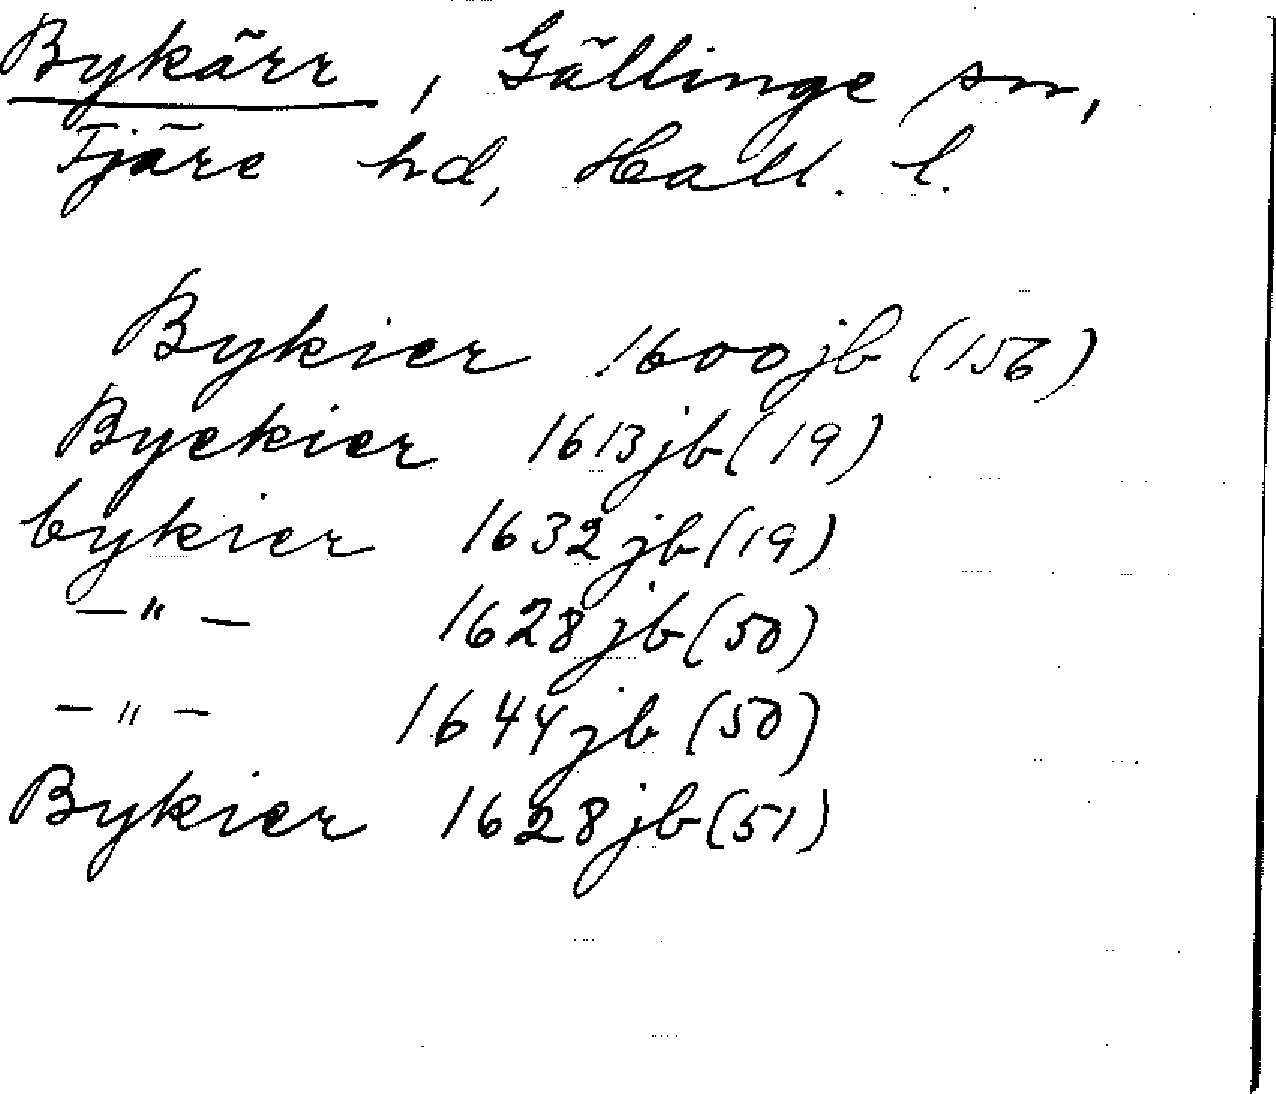 Bykärr, Gällinge sn,
Fjäre hd, Hall. l.
Bykier 1600 jb (156)
Byckier 1613 jb (19)
bykier 1632 jb (19)
— " — 1628 jb (50)
— " — 1644 jb (50)
Bykier 1628 jb (51)